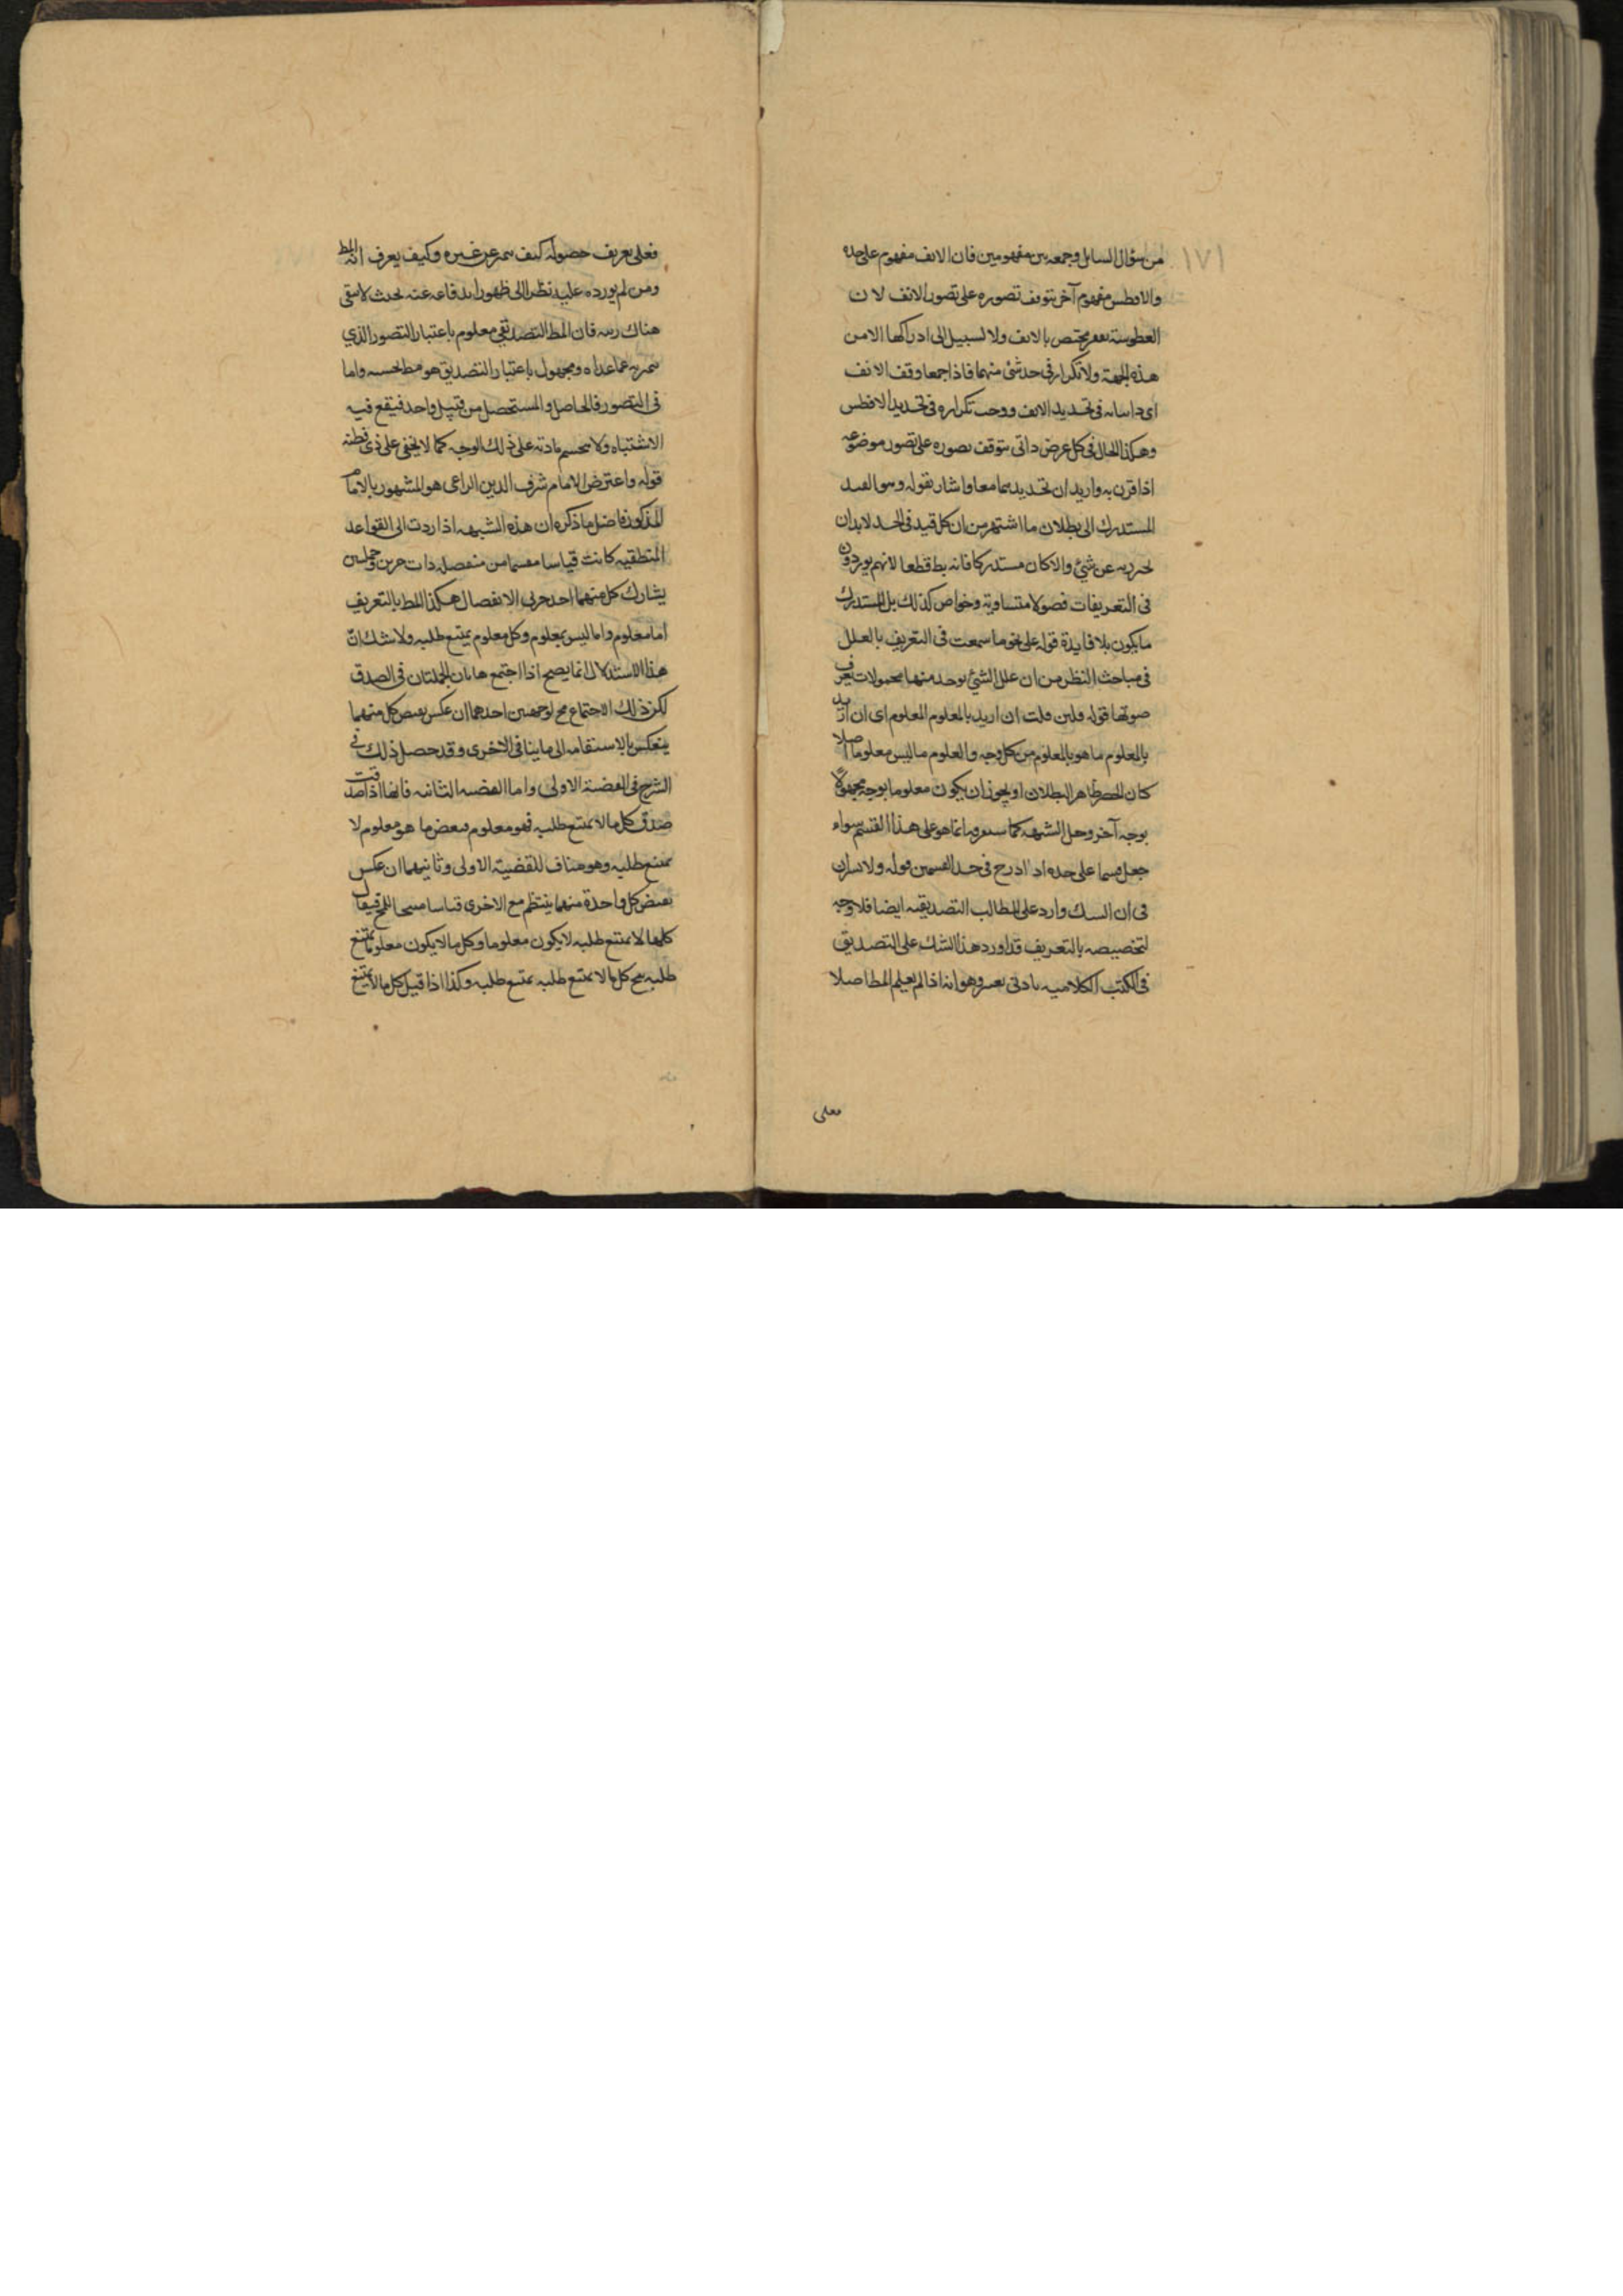 ١٧١
من سؤال السائل وجمعه بين مفهومين فان الانف مفهوم على حده
والافطس مفهوم آخر يتوقف تصوره على تصور الانف لان
الفطوسة تقعر يختص بالانف ولا لسبيل الى ادراكها الا من
هذه الجهة ولا تكرار فى حد شئ منهما فاذا جمعا وقف الانف
اى داسانه فى تحديد الانف ووجب تكراره فى تحديد الافطس
وهكذا الحال فى كل عرض ذاتى يتوقف تصوره على تصور موضوعه
اذا قرن به واريد ان تحديدهما معا واشار بقوله وهو القيد
المستدرك الى بطلان ما اشتهر من ان كل قيد فى الحد لابد ان
يحترز به عن شئ والا كان مستدركا فانه بط قطعا لانهم يوردون
فى التعريفات فصولا متساوية وخواص كذلك بل المستدرك
ما يكون بلا فايدة قوله على نحو ما سمعت فى التعريف بالعلل
فى مباحث النظر من ان علل الشئ يوجد منها محمولات يعرف
صوتها قوله فلين قلت ان اريد بالمعلوم المعلوم اى ان اريد
بالمعلوم ما هو بالمعلوم من كل وجه والعلوم ما ليس معلوما اصلا
كان الحصر ظاهر البطلان او يجوز ان يكون معلوما بوجه مجهولا
بوجه آخر وحل الشبهه كما ستعرفه انما هو على هذا القسم سواء
جعل قسما على حده او ادرج فى حد القسمين قوله ولا
فى ان الشك وارد على المطالب التصديقيه ايضا فلا وجه
لتخصيصه بالتعريف قد اورد هذا الشك على التصديق
فى الكتب الكلاميه بادنى تغير وهو انه اذا لم يعلم المط اصلا
فعلى
فعلى تعريف حصوله كيف يتميز عن غيره وكيف يعرف انه المط
ومن لم يورده عليه نظر الى ظهور اندفاعه عنه بحيث لا يبقى
هناك ريبه فان المط التصديقى معلوم باعتبار التصور الذي
يتميز به عما عداه ومجهول باعتبار التصديق هو مط بحسبه واما
فى التصور فالحاصل والمستحصل من قبيل واحد فيقع فيه
الاشتباه ولا ينحسم مادته على ذلك الوجه كما لا يخفى على ذى فطنه
قوله واعترض الامام شرف الدين المراغى هو المشهور بالامام
المذكور فاضل ما ذكره ان هذه الشبهه اذا ردت الى القواعد
المنطقيه كانت قياسا مقسما من منفصله ذات جزئين وحمليتين
يشارك كل منهما احد جزئى الانفصال هكذا المط بالتعريف
اما معلوم واما ليس بمعلوم وكل معلوم يمتنع طلبه ولا شك ان
هذا الاستدلال انما يصح اذا اجتمع هاتان الجملتان فى الصدق
لكن ذلك الاجتماع مح لوجهين احدهما ان عكس نقيض كل منهما
ينعكس بالاستقامه الى ما ينافى الاخرى وقد حصل ذلك فى
الشرح فى القضية الاولى واما القضيه الثانيه فانها اذا صدقت
صدق كل ما لا يمتنع طلبه فهو معلوم فبعض ما هو معلوم لا
يمتنع طلبه وهو مناف للقضية الاولى وثانيهما ان عكس
نقيض كل واحدة منهما ينتظم مع الاخرى قياسا منتجا للمح فيقال
كلما لا يمتنع طلبه لا يكون معلوما وكل ما لا يكون معلوما يمتنع
طلبه ينتج كل ما لا يمتنع طلبه يمتنع طلبه وكذا اذا قيل كل ما لا يمتنع